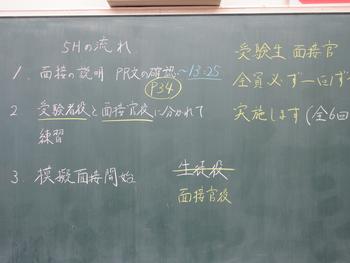 5Hの流れ
1. 面接の説明 PR文の確認 〜13:25
P34
2 受験者役と面接官役に分かれて
練習
3. 模擬面接開始
生徒役
面接官後
受験生 面接官
全員必ず一回ず
実施します(全6回